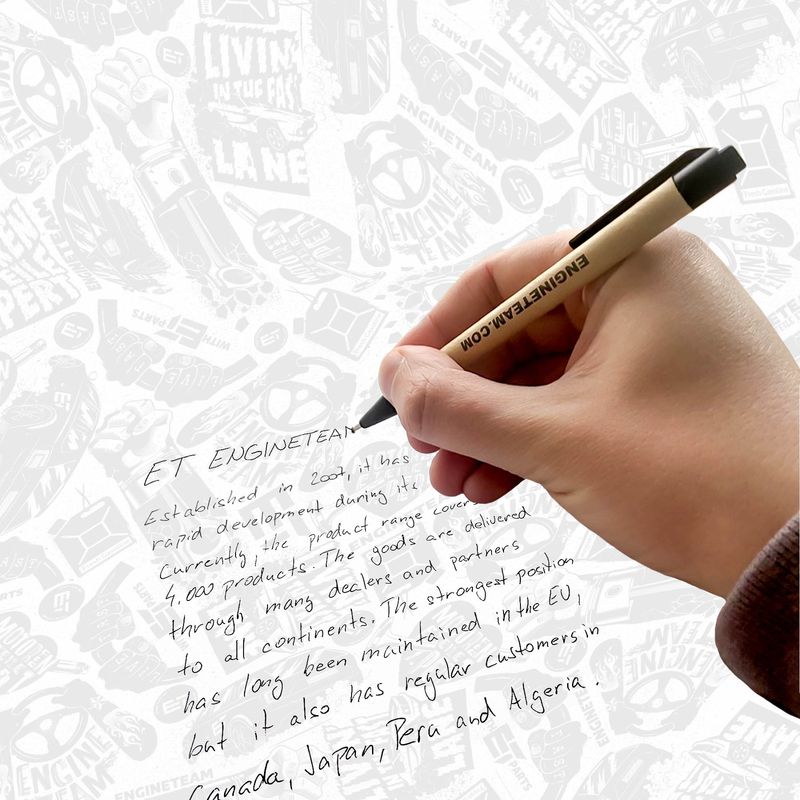 LIVIN
IN THE FAST
LANE
ENGINETEAM
ENGINETEAM.COM
ET ENGINETEAM
Established in 2007, it has
rapid development during its
Currently, the product range covers
4.000 products. The goods are delivered
through many dealers and partners
to all continents. The strongest position
has long been maintained in the EU,
but it also has regular customers in
Canada, Japan, Peru and Algeria.